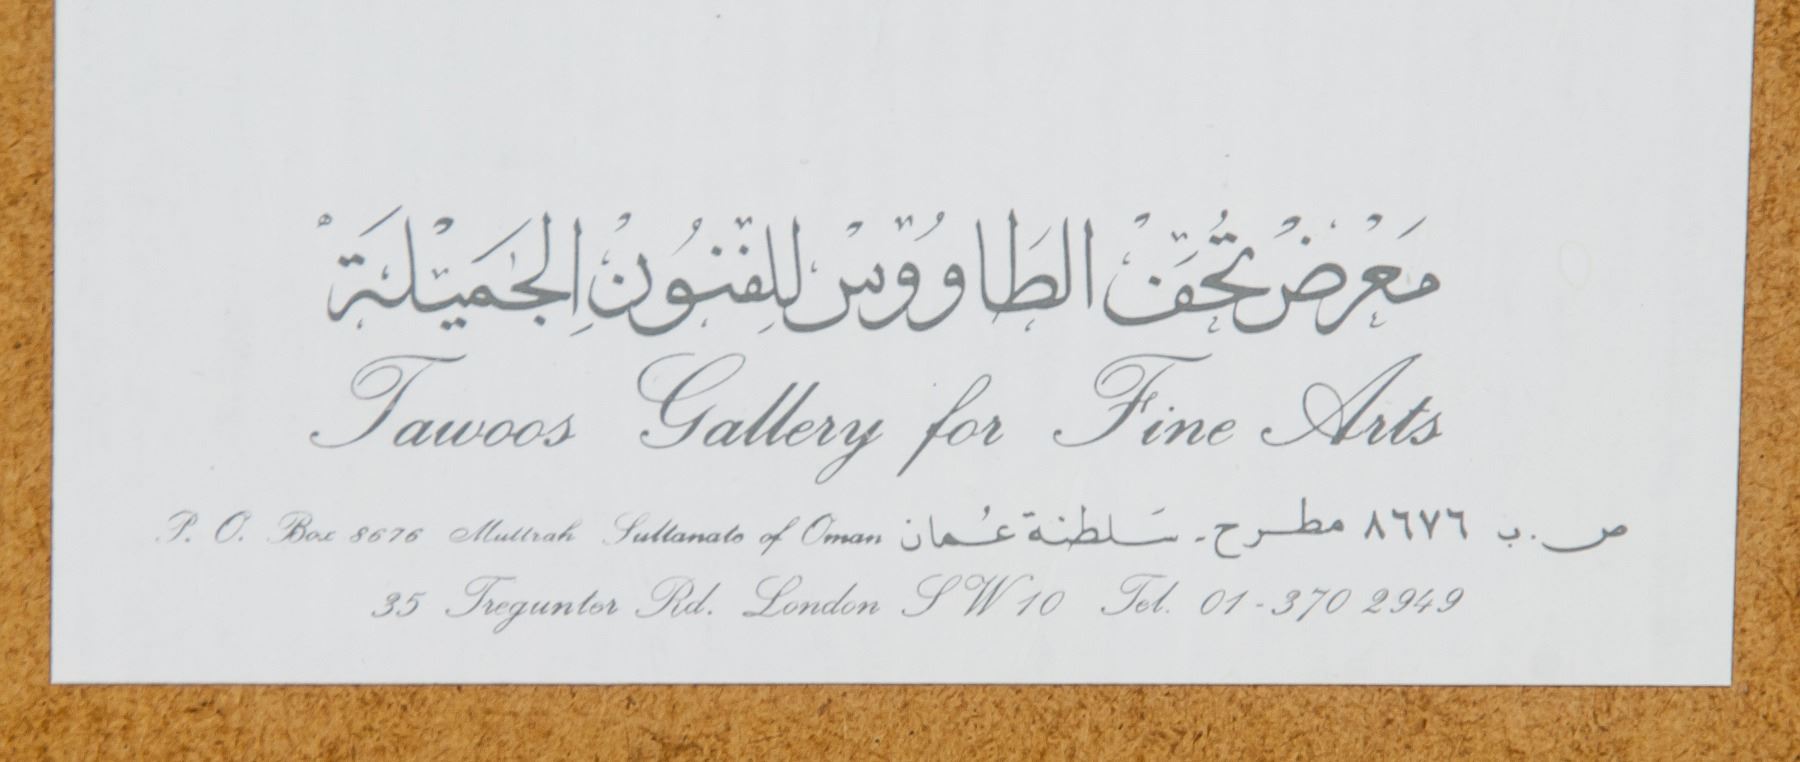 معرض تحف الطاووس للفنون الجميلة
Tawoos Gallery for Fine Arts
P. O. Box 8676 Muttrah Sultanato of Oman ص.ب ٨٦٧٦ مطرح - سلطنة عُمان
35 Tregunter Rd. London SW10 Tel. 01-370 2949